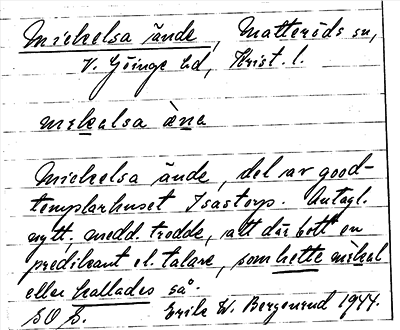 Mickelsa ände, Matteröds sn,
V. Göinge hd, Krist. l.
mekalsa äne
Mickelsa ände, del av good-
templarhuset Isastorp. Antagl.
nytt, medd. trodde, att där bott en
predikant el. talare, som hette mickel
eller kallades så.
SO b. Erik W. Bergenrud 1944.